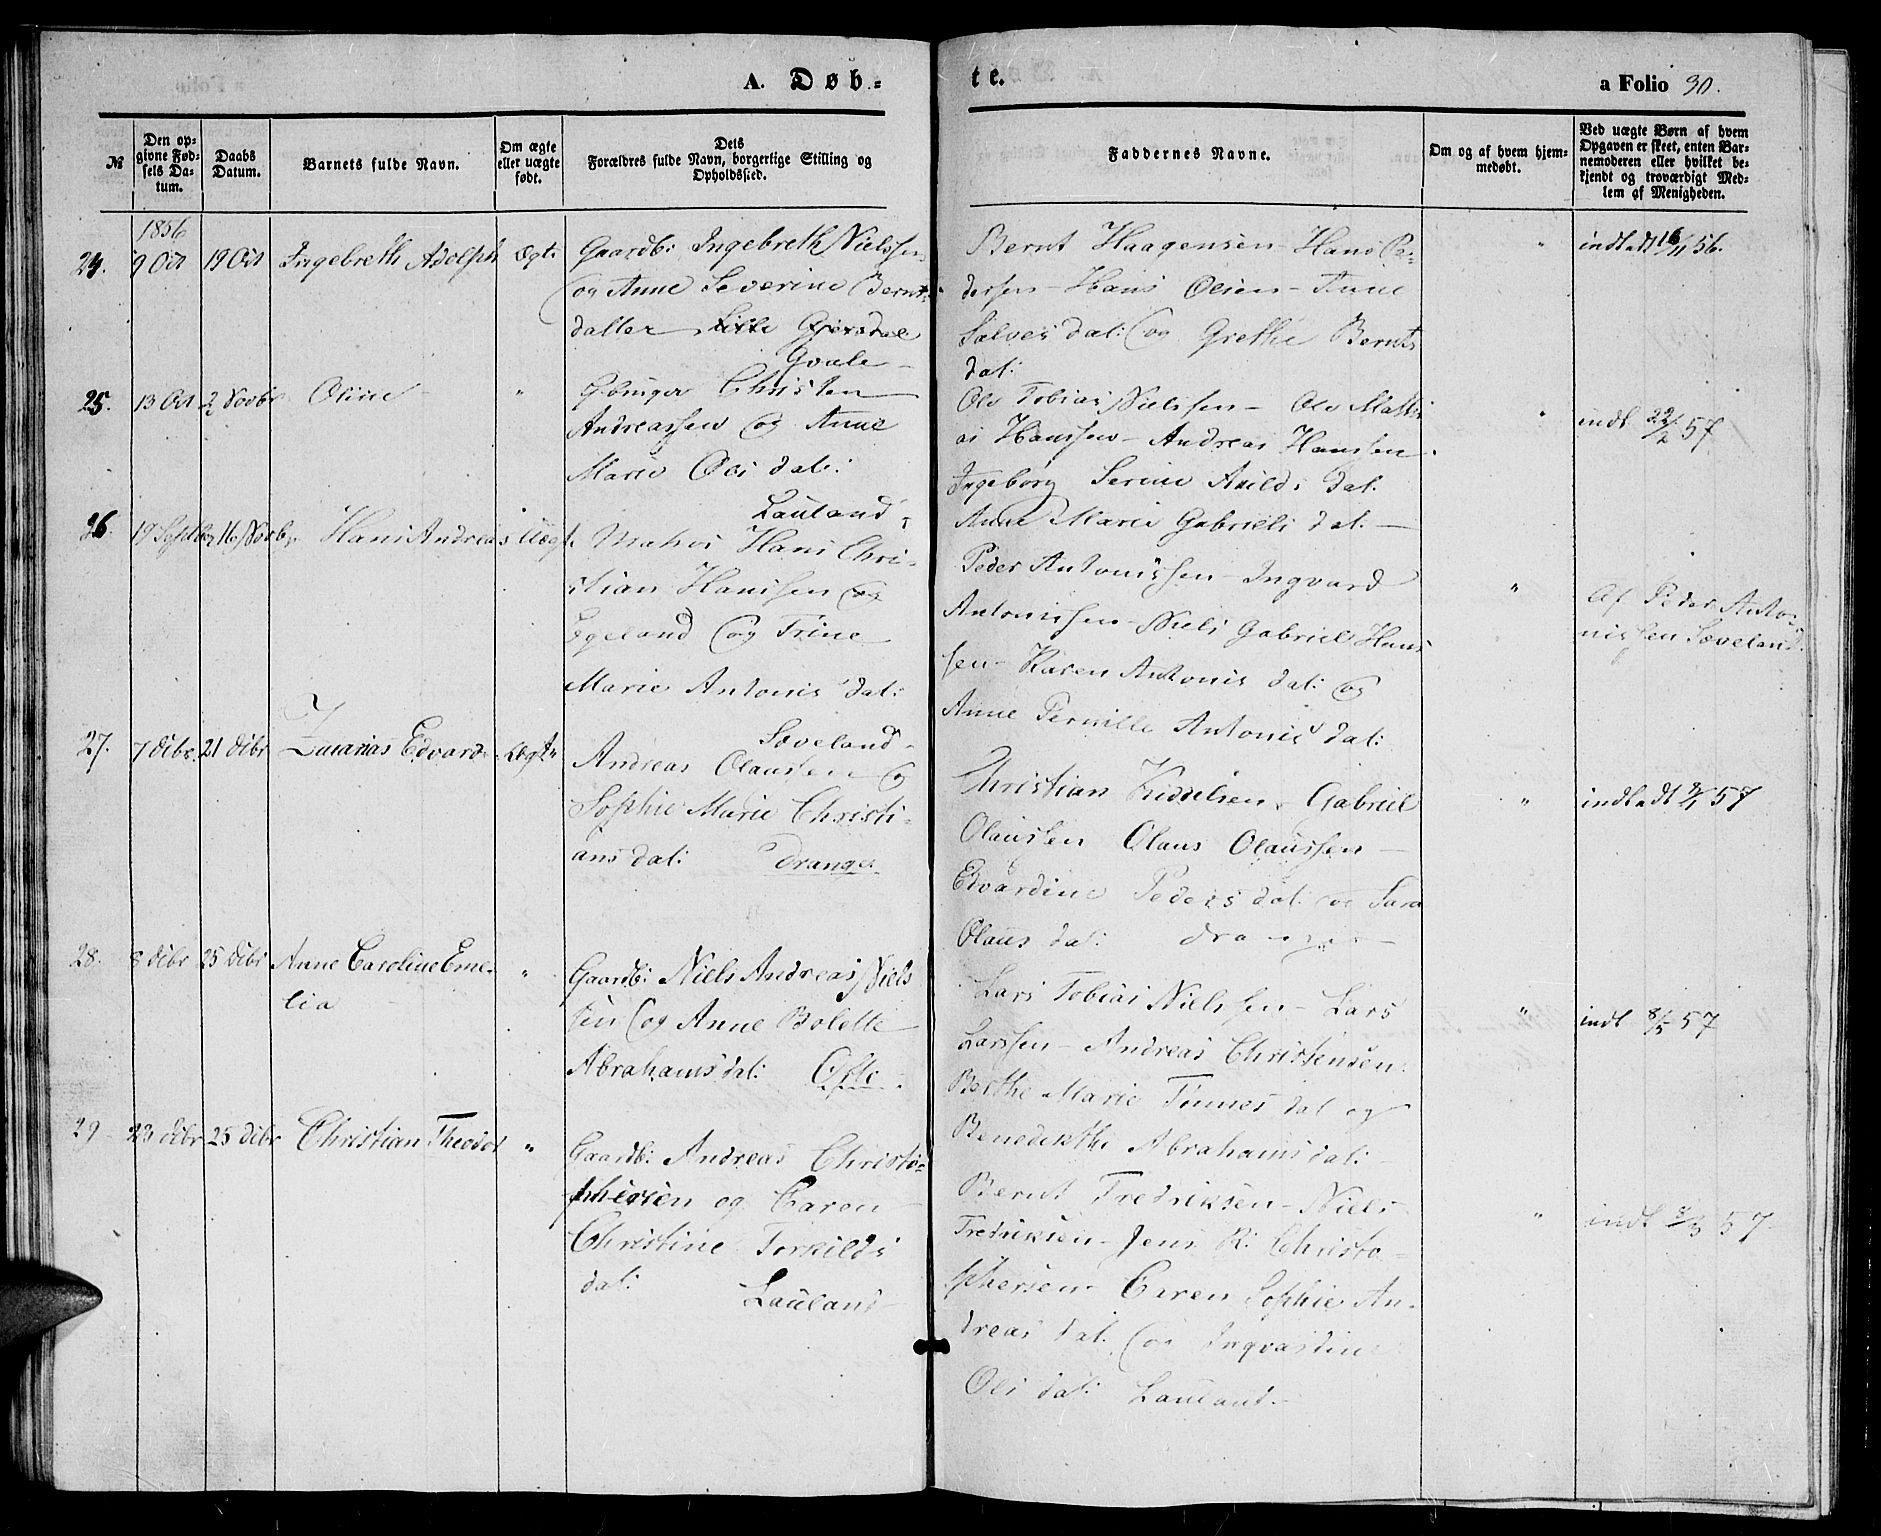 A. Døb=
te.
a Folio 30.
№
Den op-
givne Fød-
sels Da-
tum.
Daabs
Datum.
Barnets fulde Navn.
Om ægte
eller uægte
født.
Dets
Forældres fulde Navn, borgertige Stilling og
Opholdssted.
Faddernes Navne.
Om og af hvem hjem-
medøbt.
Ved uægte Børn af hvem
Opgaven er skeet, enten Bar-
nemoderen eller hvilket be-
kjendt og troværdigt Med-
lem af Menigheden.
1856
24. 9 Oct 19 Oct Ingebreth Adolph Ægt.
Gaardb: Ingebreth Nielssen
og Anne Severine Bernts
datter Lille Gjersdal
Gvale
Bernt Haagensen - Hans Pe-
dersen - Hans Olsen - Anne
Salves dat: og Grethe Bernts
dat:
" indladt 16/11 56.
25. 13 Oct 2 Novbr Oline "
Gbruger Christen
Andreassen og Anne
Marie Ols dat:
Lauland
Ole Tobias Nielssen - Ole Mathi
as Hanssen - Andreas Hanssen
Ingeborg Serine Arilds dat.
Anne Marie Gabriels dat: -
" indt 22/2 57
26. 19 Septbr 16 Novbr Hans Andreas Uægt.
Matros Hans Chri-
stian Hanssen
Egeland og Trine
Marie Antonis dat:
Søveland
Peder Antonissen - Ingvard
Antonissen - Niels Gabriel Hans
sen - Karen Antonis dat: og
Anne Pernille Antonis dat:
" Af Peder Anto-
nissen Søveland
27. 7 dcbr. 21 dcbr Zacarias Edvard Ægt.
Andreas Olaussen og
Sophie Marie Christi-
ans dat: Drange
Christian Kiddelsen - Gabriel
Olaussen Olaus Olaussen -
Edvardine Peders dat: og Sara
Olaus dat: Drange
" indladt 57
28. 8 dcbr 25 dcbr Anne Caroline Eme-
lia "
Gaardb: Niels Andreas Niels
sen og Anne Bolette
Abrahams dat: Ofte
Lars Tobias Nielssen - Lars
Larssen - Andreas Christensen
Berthe Marie Tønnes dat og
Benedikthe Abrahams dat:
" indt 8/5 57
29 23 dcbr 25 dcbr Christian Theodor "
Gaardb: Andreas Christo-
phersen og Caren
Christine Torkilds
dat: Lauland
Bernt Fredriksen - Niels
Fredriksen - Jens R: Christo-
phersen - Caren Sophie An-
dreas dat. og Ingvardine
Ols dat: Lauland.
" indt 8/3 57